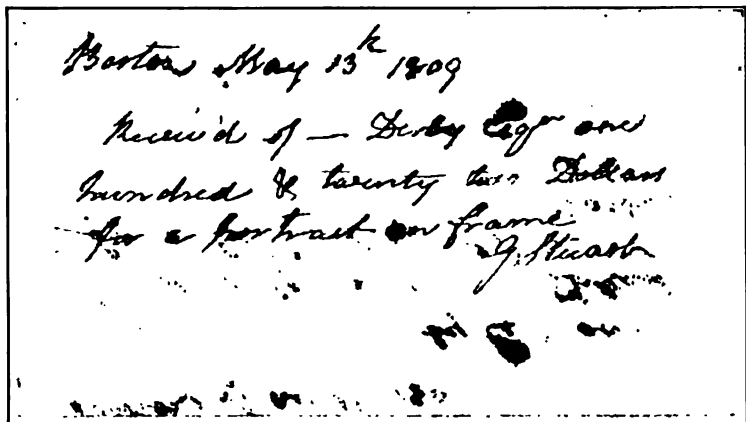 Boston May 13th 1809
Receiv'd of — Derby Esqr one
hundred & twenty two Dollars
for a portrait on frame
G. Stuart